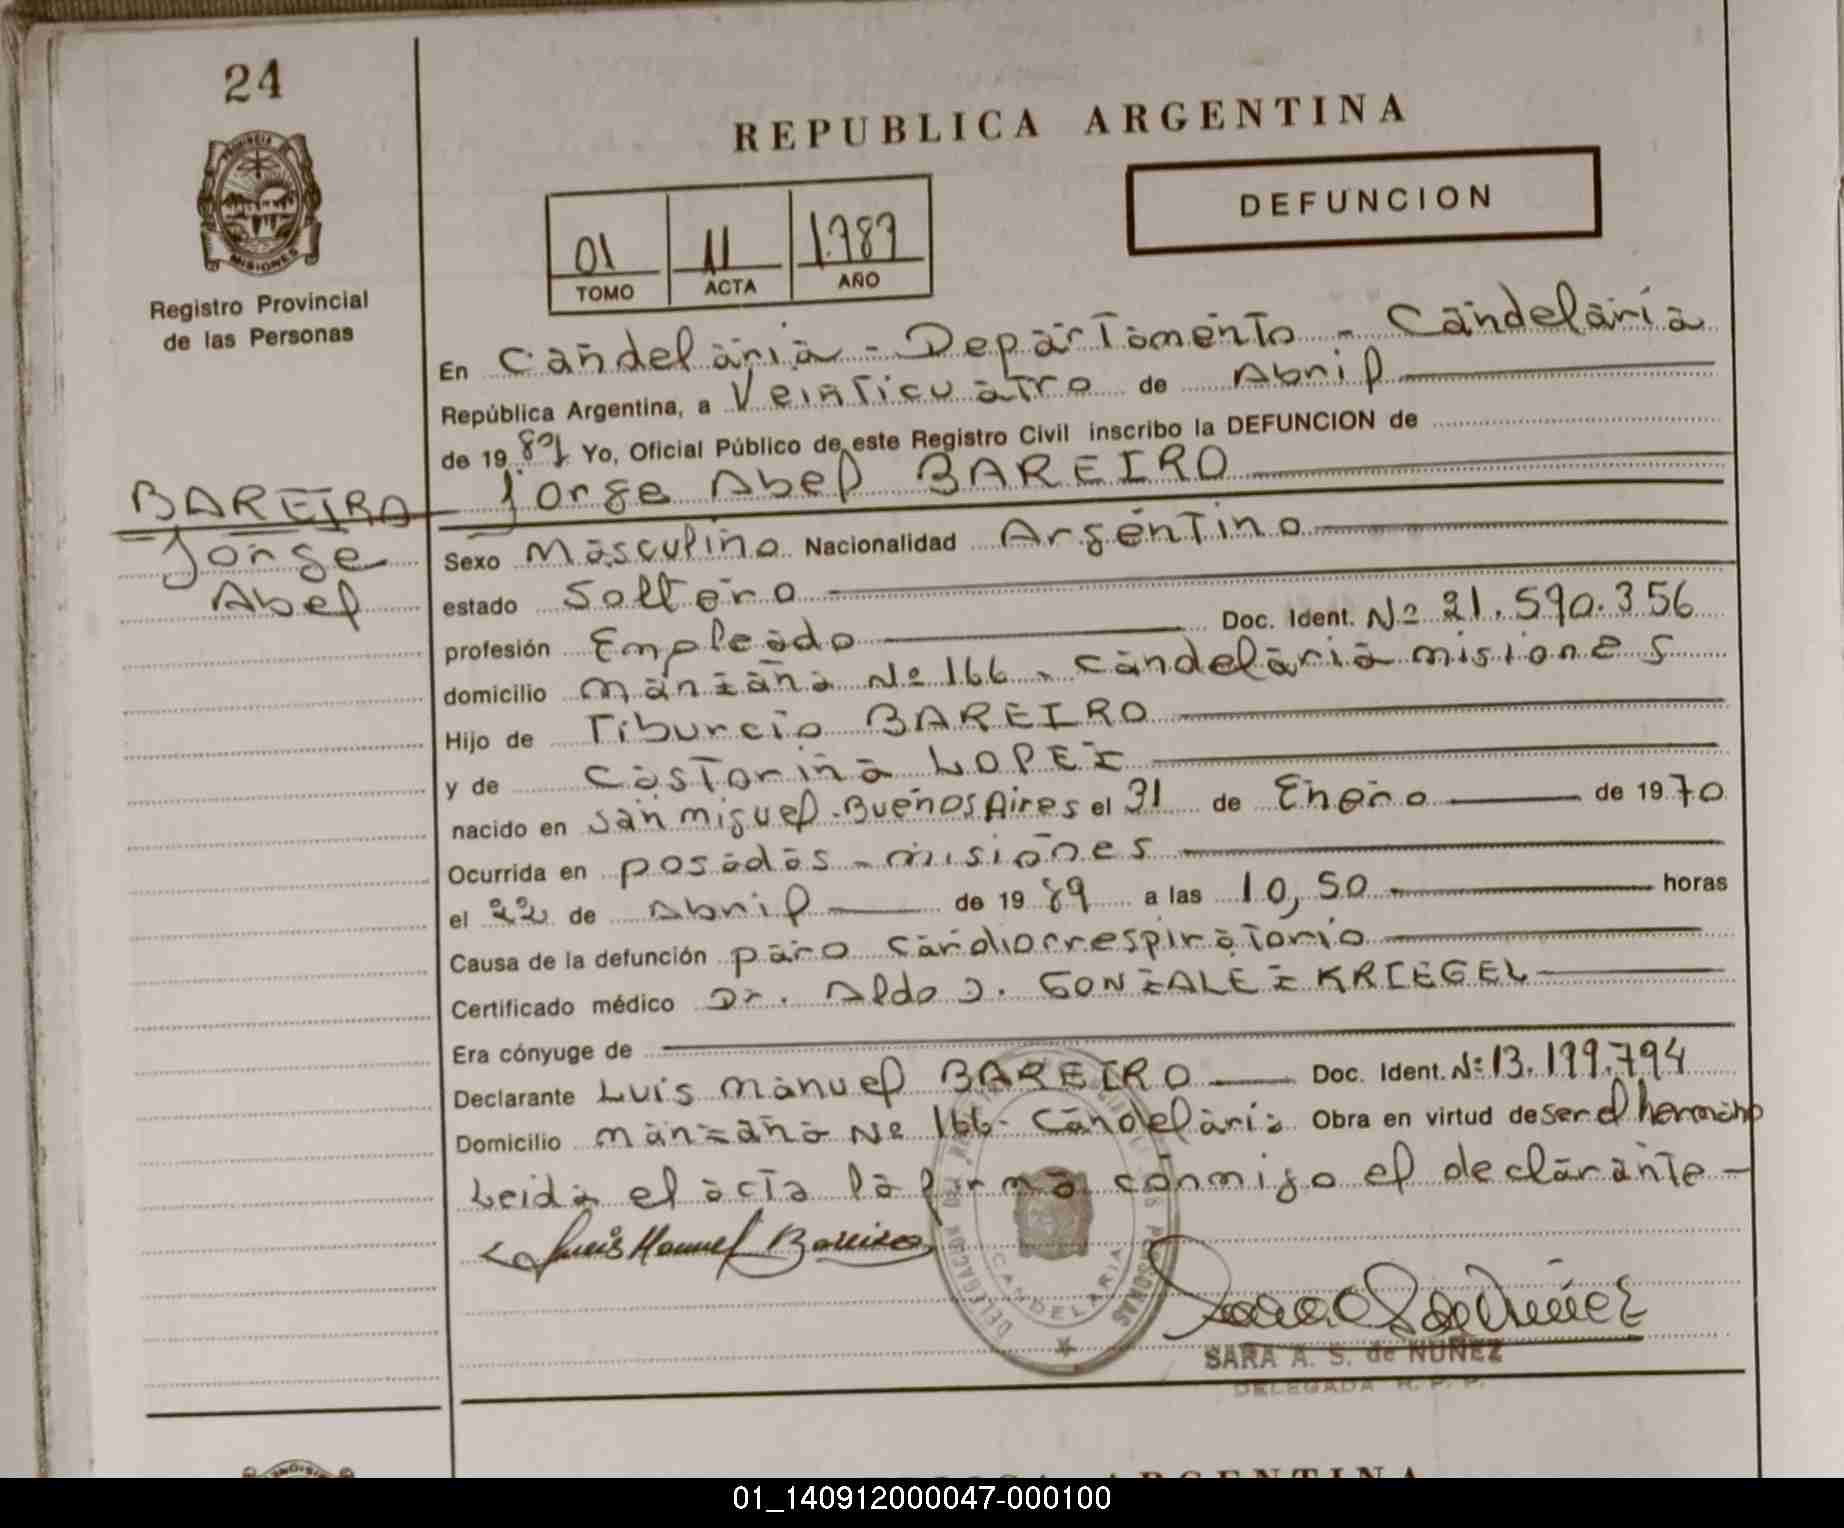 24
REPUBLICA ARGENTINA
PROVINCIA DE
MISIONES
Registro Provincial
de las Personas
DEFUNCION
01 11 1.989
TOMO ACTA AÑO
En Candelaria - Departamento - Candelaria
República Argentina, a Veinticuatro de Abril
de 19 89 Yo, Oficial Público de este Registro Civil inscribo la DEFUNCION de
Jorge Abel BAREIRO
BAREIRO
Jorge
Abel
Sexo Masculino Nacionalidad Argentino
estado Soltero
profesión Empleado Doc. Ident. Nº 21.590.356
domicilio manzana Nº 166 - Candelaria misiones
Hijo de Tiburcio BAREIRO
y de Castorina LOPEZ
nacido en San miguel - Buenos Aires el 31 de Enero de 19 70
Ocurrida en posadas - misiones
el 22 de Abril de 19 89 a las 10,50 horas
Causa de la defunción paro cardiorrespiratorio
Certificado médico Dr. Aldo J. GONZALEZ KRIEGEL
Era cónyuge de
Declarante Luis Manuel BAREIRO Doc. Ident. Nº 13.199.794
Domicilio manzana Nº 166 - Candelaria Obra en virtud de ser el hermano
Leida el acta la firma conmigo el declarante -
Luis Manuel Bareiro
DELEGACION PERSONAS
CANDELARIA
SARA A. S. de NUÑEZ
DELEGADA R. P. P.
ARGENTINA
01_140912000047-000100